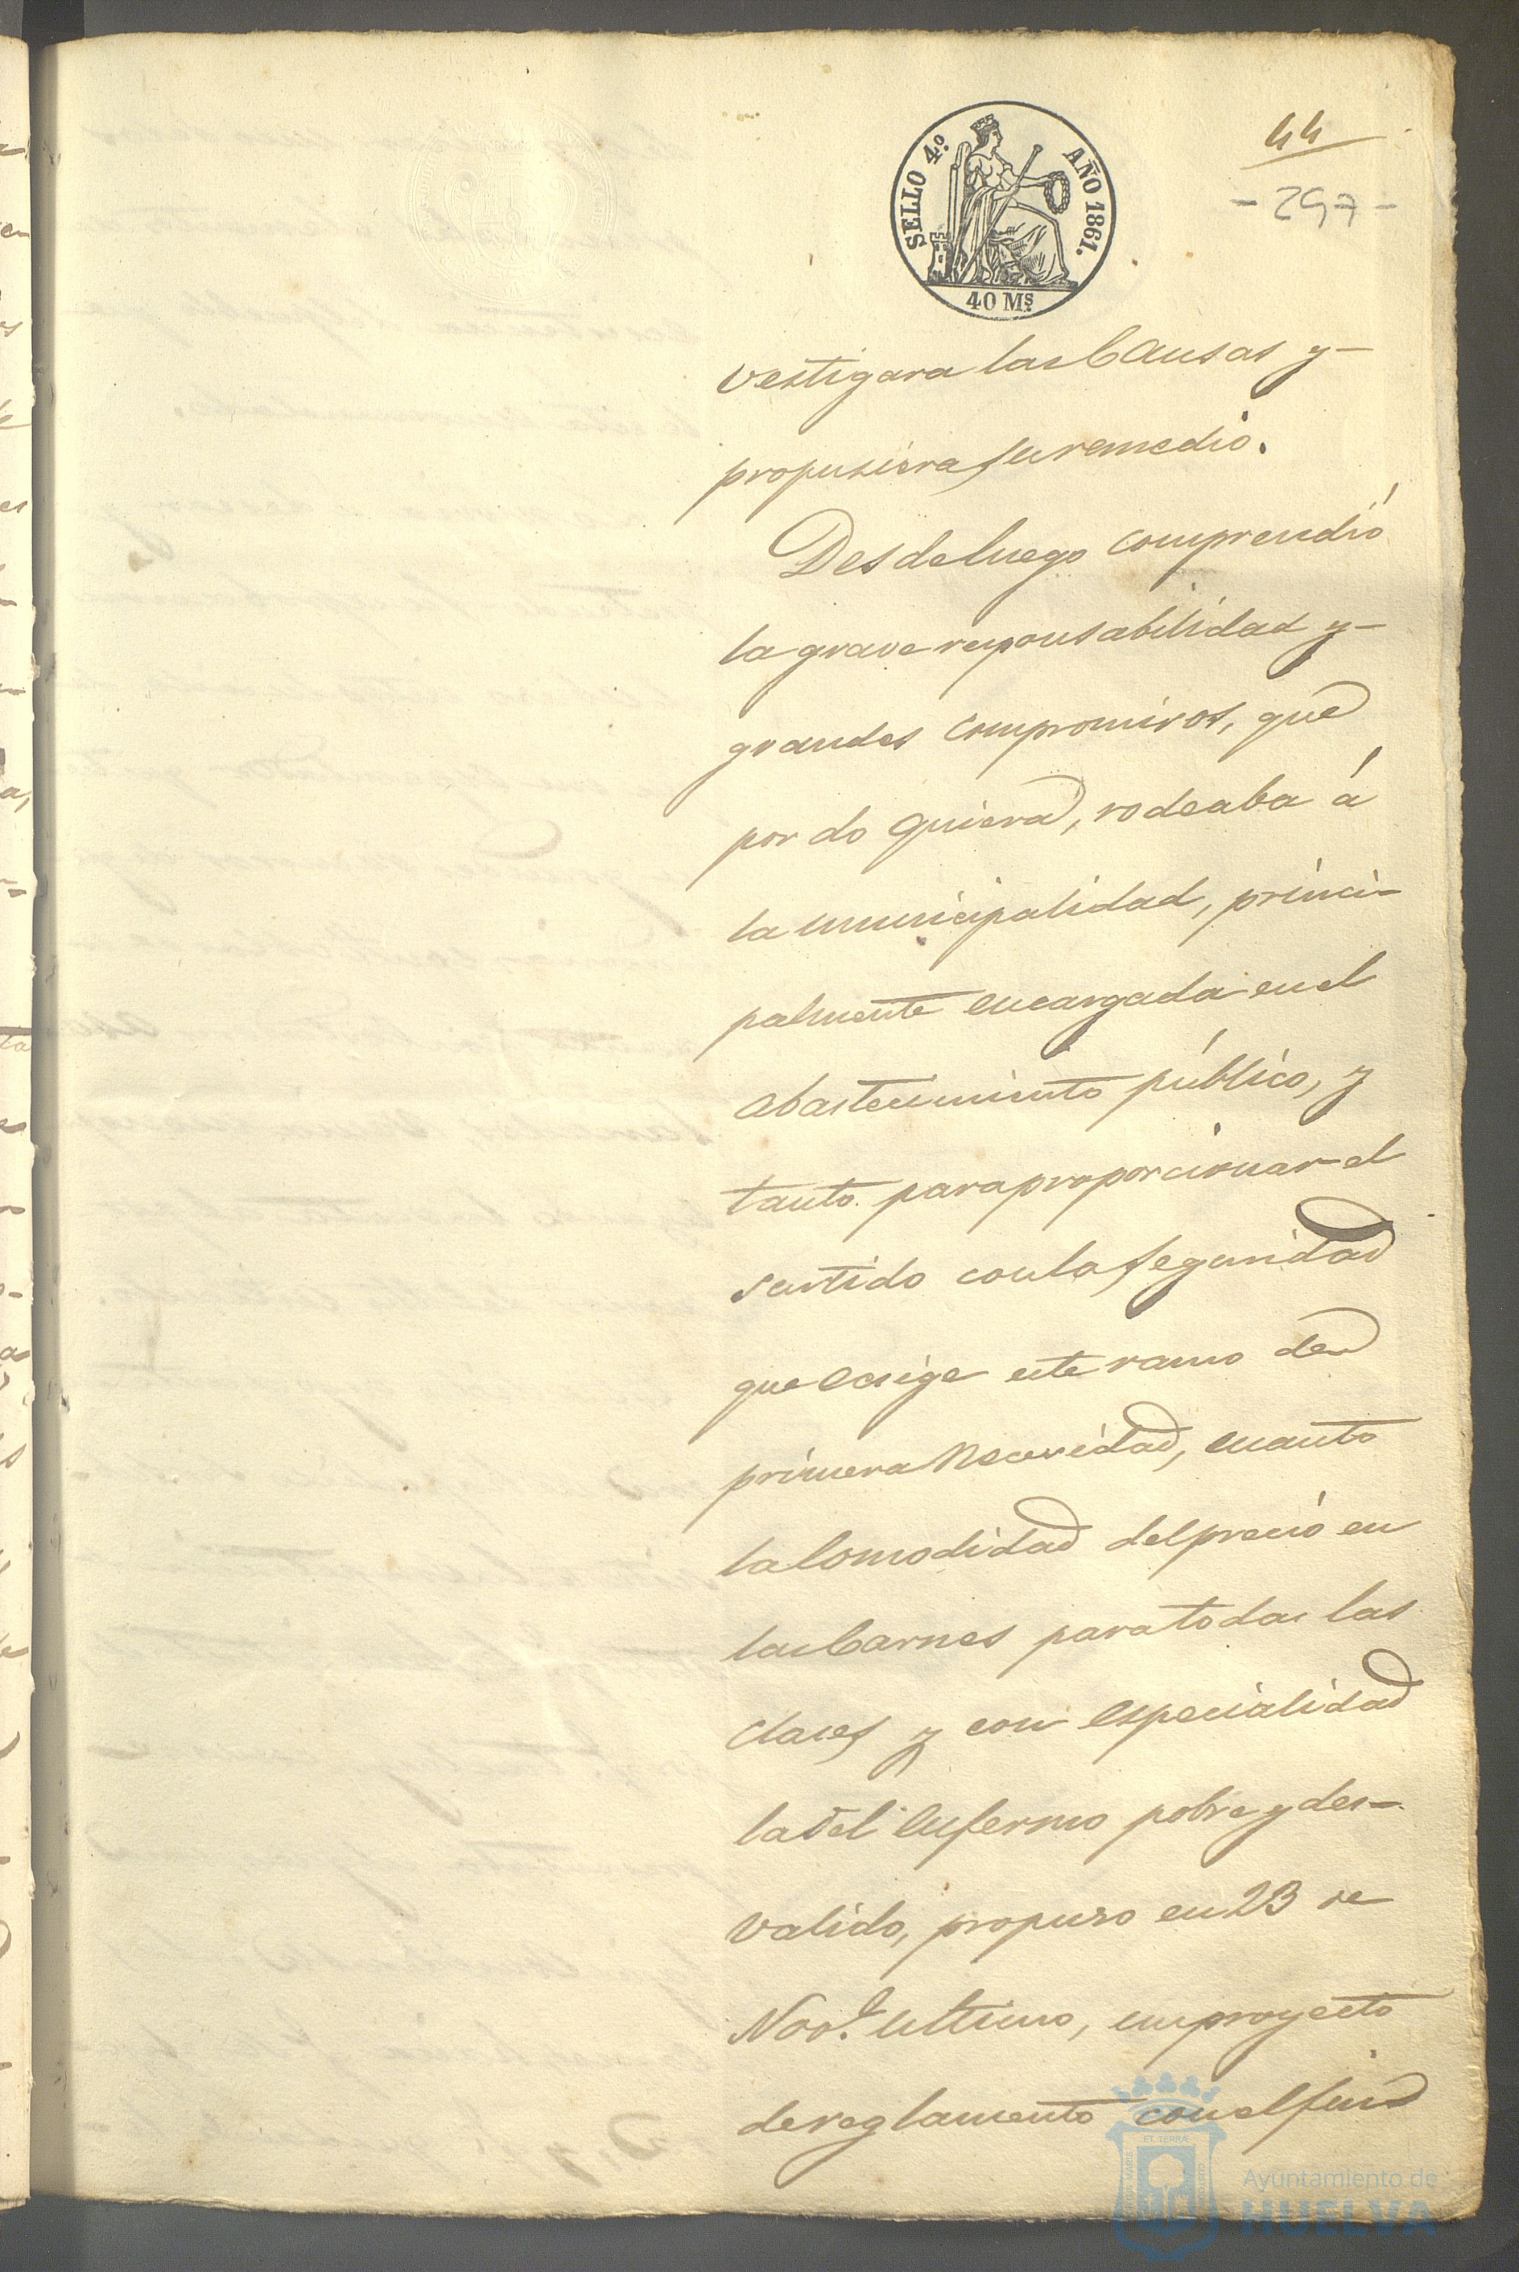 SELLO 4º AÑO 1861.
40 Ms.
44
- 297 -
vestigara las Causas y-
propusiera su remedio.
Desde luego comprendió
la grave responsabilidad y-
grandes compromisos, que
por do quiera, rodeaba á
la municipalidad, princi-
palmente encargada en el
abastecimiento público, y
tanto para proporcionar el
surtido con la seguridad
que ecsige este ramo de
primera necesidad, cuanto
la Comodidad del precio en
las Carnes para todas las
clases y con especialidad
la del enfermo pobre y des-
valido, propuso en 23 de
Nove. ultimo, un proyecto
de reglamento con el fin
Ayuntamiento de
HUELVA